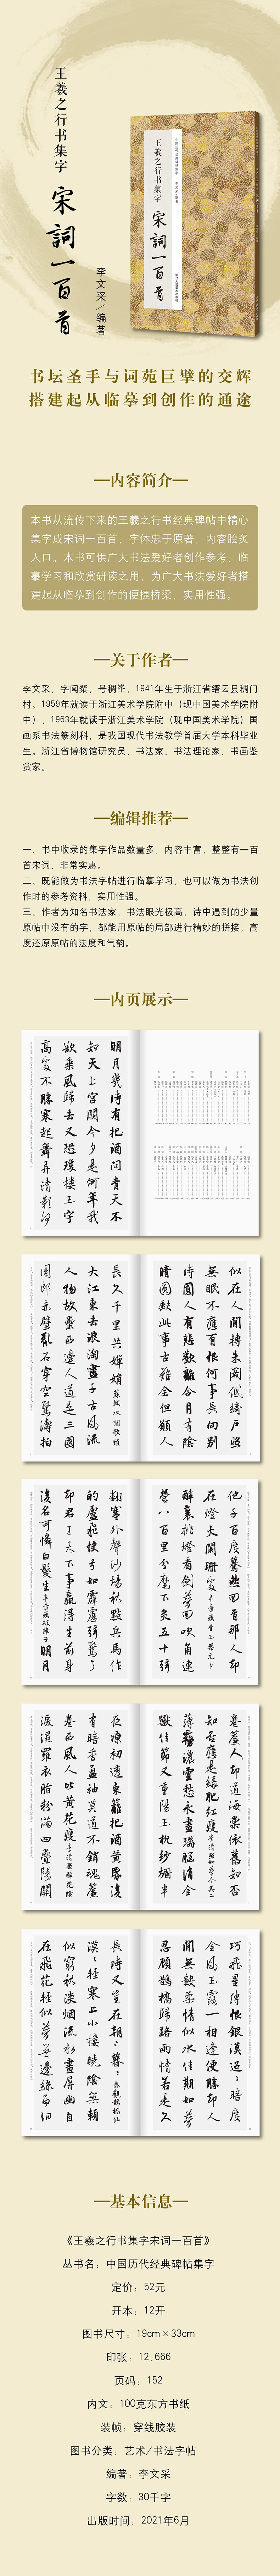 王羲之行书集字
宋詞一百首
李文采／编著
中国历代经典碑帖集字
李文采 编著
王羲之行书集字
宋詞一百首
书坛圣手与词苑巨擘的交辉
搭建起从临摹到创作的通途
内容简介
本书从流传下来的王羲之行书经典碑帖中精心
集字成宋词一百首，字体忠于原著，内容脍炙
人口。本书可供广大书法爱好者创作参考、临
摹学习和欣赏研读之用，为广大书法爱好者搭
建起从临摹到创作的便捷桥梁，实用性强。
关于作者
李文采，字闻粲，号稠峯，1941年生于浙江省缙云县稠门
村。1959年就读于浙江美术学院附中（现中国美术学院附
中），1963年就读于浙江美术学院（现中国美术学院）国
画系书法篆刻科，是我国现代书法教学首届大学本科毕业
生。浙江省博物馆研究员、书法家、书法理论家、书画鉴
赏家。
编辑推荐
一、书中收录的集字作品数量多，内容丰富，整整有一百
首宋词，非常实惠。
二、既能做为书法字帖进行临摹学习，也可以做为书法创
作时的参考资料，实用性强。
三、作者为知名书法家，书法眼光极高，诗中遇到的少量
原帖中没有的字，都能用原帖的局部进行精妙的拼接，高
度还原原帖的法度和气韵。
内页展示
明月幾時有把酒問青天不
知天上宮闕今夕是何年我
欲乘風歸去又恐瓊樓玉宇
高處不勝寒起舞弄清影何
似在人間轉朱閣低綺戶照
無眠不應有恨何事長向別
時圓人有悲歡離合月有陰
晴圓缺此事古難全但願人
長久千里共嬋娟 蘇軾水調歌頭
大江東去浪淘盡千古風流
人物故壘西邊人道是三國
周郎赤壁亂石穿空驚濤拍
他千百度驀然回首那人却
在燈火闌珊處 辛棄疾青玉案元夕
醉裏挑燈看劍夢回吹角連
營八百里分麾下炙五十弦
翻塞外聲沙場秋點兵馬作
的盧飛快弓如霹靂弦驚了
却君王天下事贏得生前身
後名可憐白髮生 辛棄疾破陣子 明月
卷簾人却道海棠依舊知否
知否應是綠肥紅瘦 李清照如夢令其二
薄霧濃雲愁永晝瑞腦消金
獸佳節又重陽玉枕紗櫥半
夜凉初透東籬把酒黃昏後
有暗香盈袖莫道不銷魂簾
卷西風人比黃花瘦 李清照醉花陰
淚濕羅衣脂粉滿四疊陽關
巧飛星傳恨銀漢迢迢暗度
金風玉露一相逢便勝却人
間無數柔情似水佳期如夢
忍顧鵲橋歸路兩情若是久
長時又豈在朝朝暮暮 秦觀鵲橋仙
漠漠輕寒上小樓曉陰無賴
似窮秋淡煙流水畫屏幽自
在飛花輕似夢無邊絲雨細
基本信息
《王羲之行书集字宋词一百首》
丛书名：中国历代经典碑帖集字
定价：52元
开本：12开
图书尺寸：19cm×33cm
印张：12.666
页码：152
内文：100克东方书纸
装帧：穿线胶装
图书分类：艺术/书法字帖
编著：李文采
字数：30千字
出版时间：2021年6月